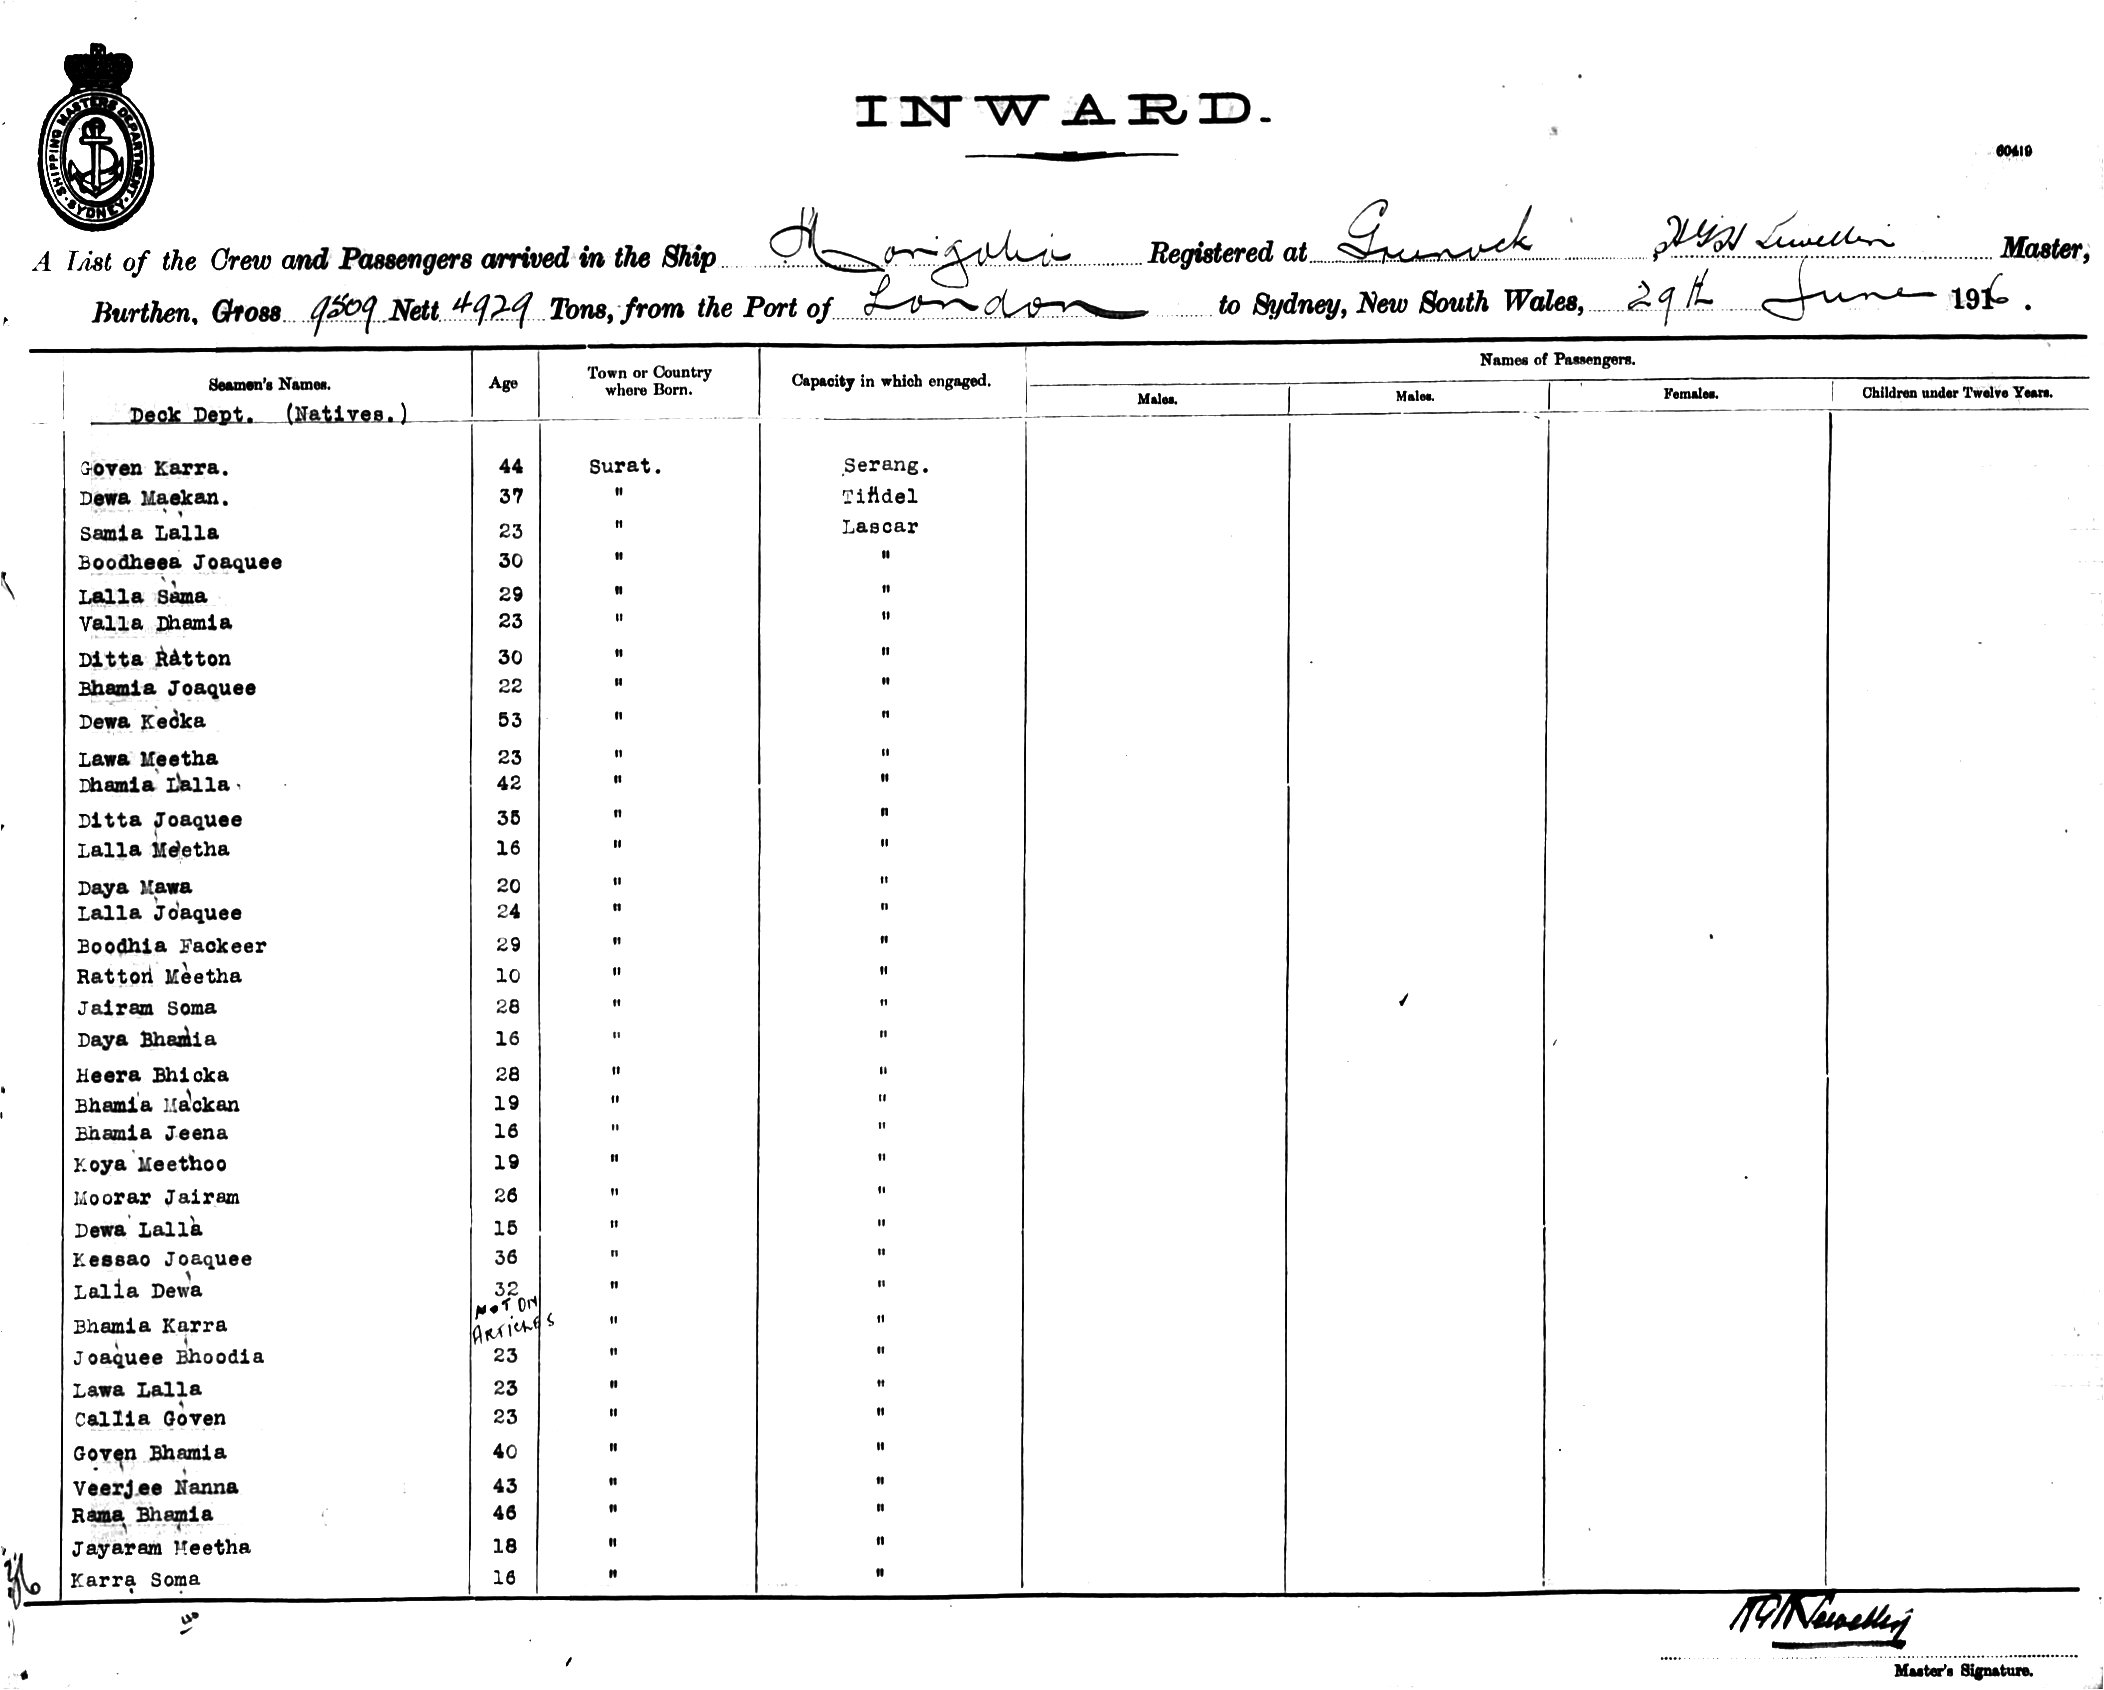 SHIPPING MASTERS DEPARTMENT
SYDNEY
INWARD.
60419
A List of the Crew and Passengers arrived in the Ship Mongolia Registered at Greenock, Master,
Burthen, Gross 9509 Nett 4929 Tons, from the Port of London to Sydney, New South Wales, 29th June 1916.
Seamen's Names. Age Town or Country where Born. Capacity in which engaged. Names of Passengers.
Males. Males. Females. Children under Twelve Years.
Deck Dept. (Natives.)
Goven Karra. 44 Surat. Serang.
Dewa Maekan. 37 " Tindel
Samia Lalla 23 " Lascar
Boodheea Joaquee 30 " "
Lalla Sama 29 " "
Valla Dhamia 23 " "
Ditta Ratton 30 " "
Bhamia Joaquee 22 " "
Dewa Kecka 53 " "
Lawa Meetha 23 " "
Dhamia Lalla 42 " "
Ditta Joaquee 35 " "
Lalla Meetha 16 " "
Daya Mawa 20 " "
Lalla Joaquee 24 " "
Boodhia Fackeer 29 " "
Ratton Meetha 10 " "
Jairam Soma 28 " "
Daya Bhamia 16 " "
Heera Bhicka 28 " "
Bhamia Mackan 19 " "
Bhamia Jeena 16 " "
Koya Meethoo 19 " "
Moorar Jairam 26 " "
Dewa Lalla 15 " "
Kessao Joaquee 36 " "
Lalia Dewa 32 " "
Bhamia Karra NOT ON ARTICLES " "
Joaquee Bhoodia 23 " "
Lawa Lalla 23 " "
Callia Goven 23 " "
Goven Bhamia 40 " "
Veerjee Nanna 43 " "
Rama Bhamia 46 " "
Jayaram Meetha 18 " "
Karra Soma 16 " "
Master's Signature.